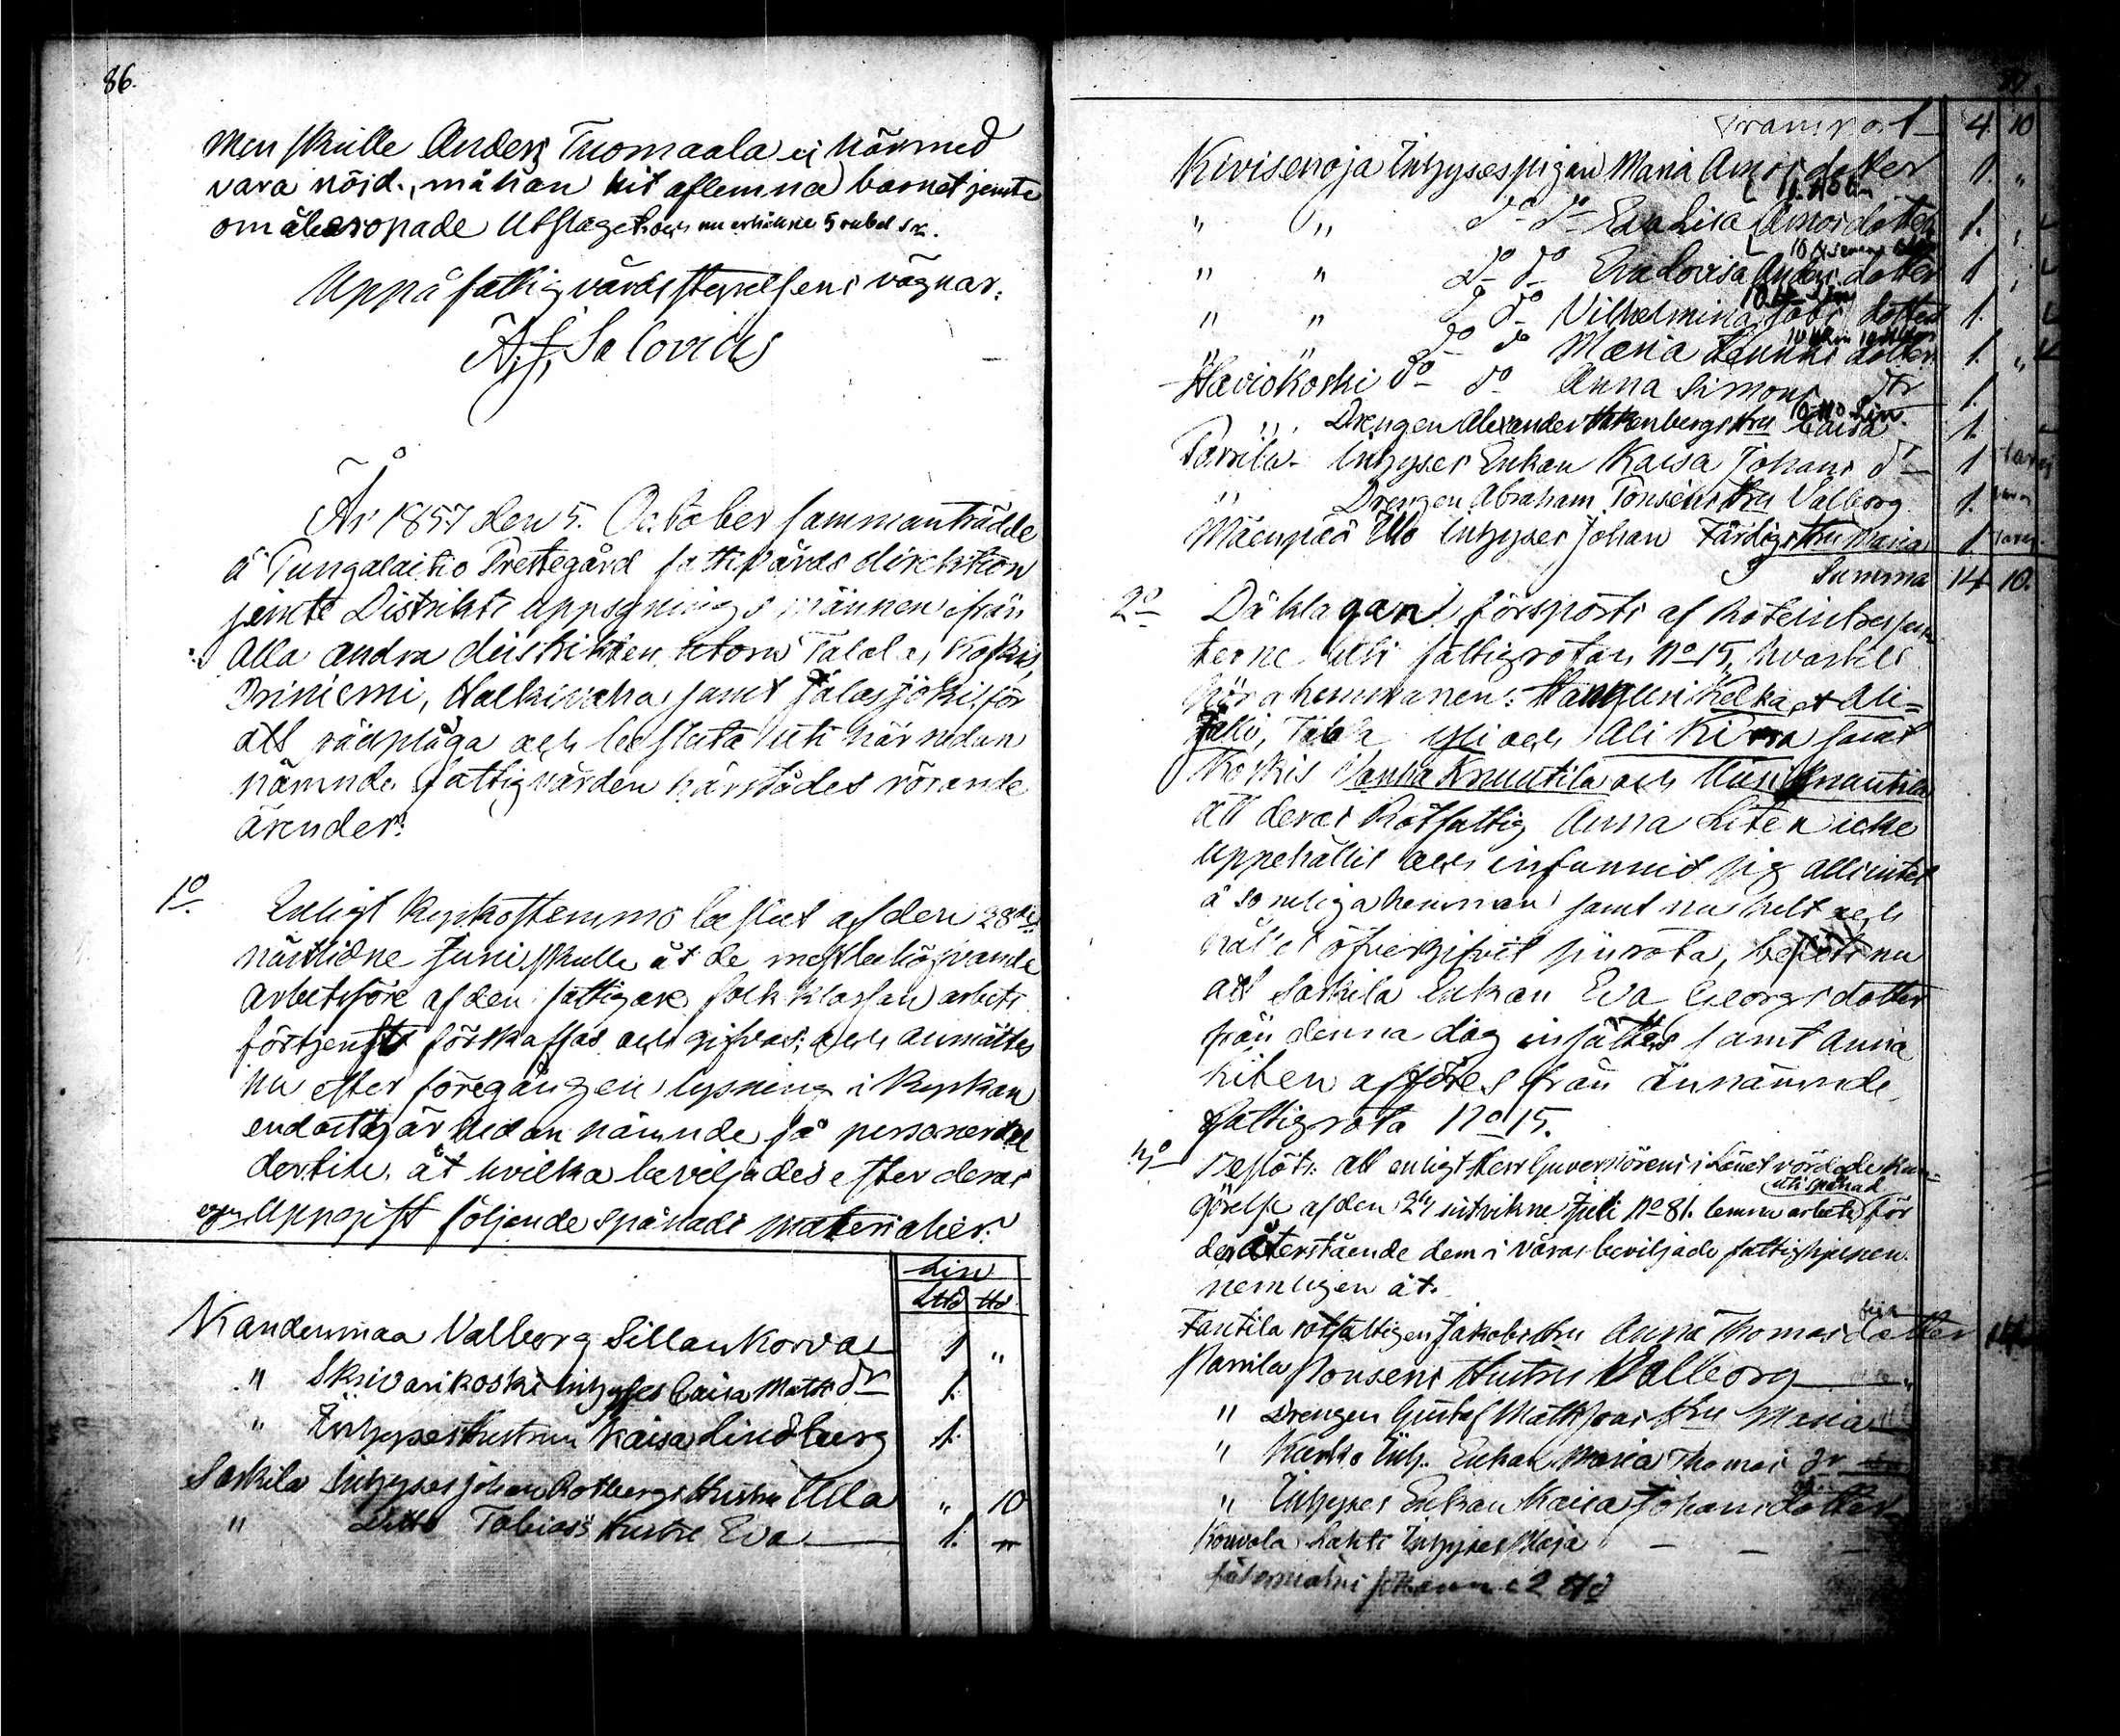 86.
men skulle Anders Tuomaala ej härmed
vara nöjd, må han hit aflemna barnet jemte
omåberopade Utslaget, och nu erhållne 5 rubel Sr.
Uppå fattigvårdsstyrelsens vägnar:
A. F. Salovius
År 1857 den 5. October sammanträdde
å Pungalaitio Prestegård fattivårds direktion
jemte Distrikts uppsyningsmännen ifrån
alla andra distrikten, utom Talala, Koskis,
Iriniemi, Halkivaha samt Jalasjöki, för
att rådpläga och besluta uti här nedan
nämnde fattigvården härstädes rörande
ärender:
1o. Enligt Kyrkostemmo beslut af den 28de
nästlidne Juni skulle åt de mest behöfvande
arbetsföre af den fattigare folkklassan arbets
förtjenst förskaffas och gifvas; och anmälte
nu efter föregången lysning i Kyrkan
endast här nedan nämnde få personer sig
dertill, åt hvilka beviljades efter deras
egen uppgift följande spånads materialier:
Lin
L℔ ℔
Kandenmaa Valborg Sillankorva 1 "
" Skrivarikoski Inhyses Caisa Matts dr 1.
" Inhyses hustrun Kaisa Lindberg 1.
Saskila Inhyses Johan Rotbergs Hustru Ulla " 10
" Ditto Tobias's Hustru Eva 1. "
87
Transport 4. 10
Kivisenoja Inhysespigan Maria Amos dotter 1. "
" " do do Eva Lisa Amos dotter 1. "
" " do do Eva Lovisa Anders dotter 1 "
" " do do Vilhelmina Jobs dotter 1.
" " do do Maria Hennics dotter 1. "
Haviokoski do do Anna Simons dtr 1.
" Drengen Alexander Hakenbergs hru Caisa 1.
Parrila Inhyses Enkan Kaisa Johans dr 1
" Drengen Abraham Ponséns hru Valborg 1.
Mäenpää Ulo Inhyses Johan Färdigs hru Maria 1
Summa 14 10.
2o Då klagan försports af Roteintressen
terne uti fattigrotan No 15, hvartill
höra hemmanen: Kalka, Ali-
Jalli, Yli och Ali Kirra samt
Koskis Vanha Knuutila och Uusi Knuutila
att deras Rotfattig Anna Liten icke
uppehållit och infunnit sig allenast
å somliga hemman samt nu helt och
hållet öfvergifvit sin rota, beslöts nu
att Saskila Enkan Eva Georgs dotter
från denna dag insättes samt Anna
Liten afföres från ännämnde
fattigrota No 15.
3o Beslöts att enligt Herr Guvernörens i Länet vördade Kun-
görelse af den 24 sistvikne Juli No 81. lemna arbete uti spånad för
den återstående dem i våras beviljade fattighjelpen
nemligen åt.
Fantila rotfattigen Jakobs hru Anna Thomas dotter
Parrila Ponsens Hustru Valborg
" Drengen Gustaf Mattssons hru Maria
" Kurko Inh. Enkan Maria Thomas dr
" Inhyses Enkan Kaisa Johans dotter
Kouvola Lahti Inhyses Maja